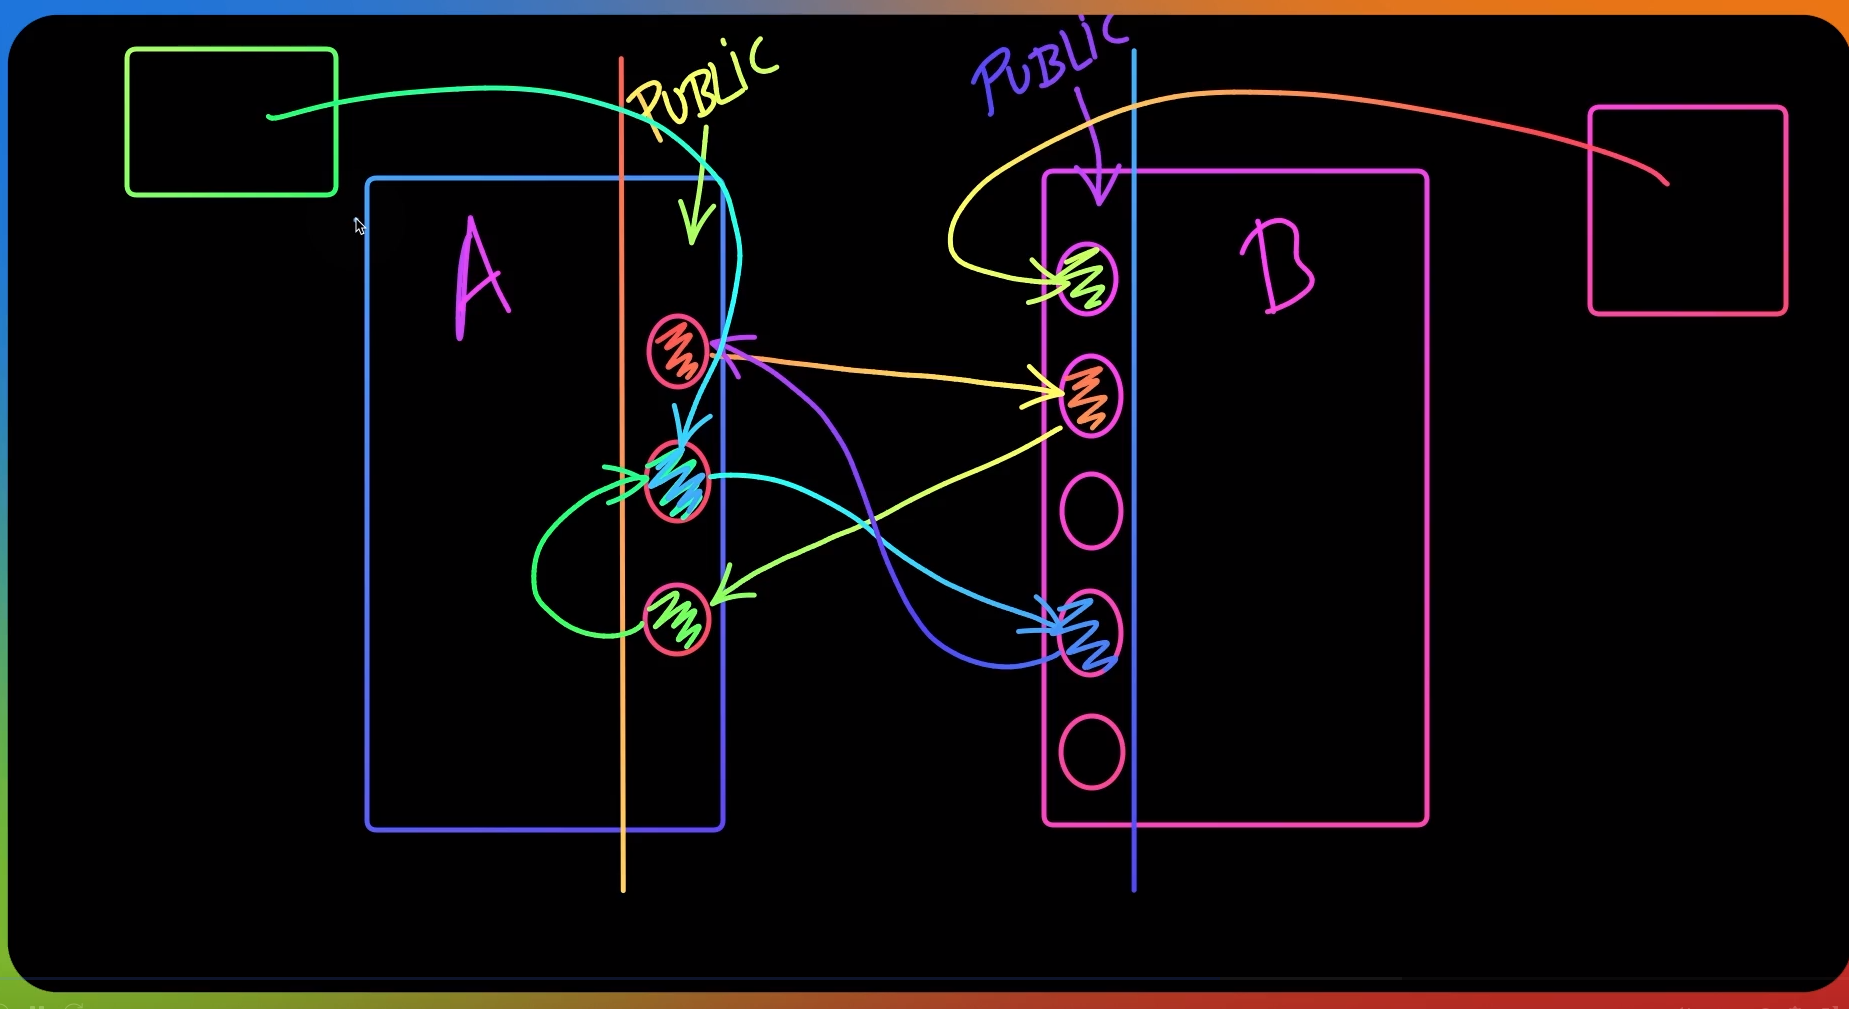 PUBLIC
PUBLIC
A
B